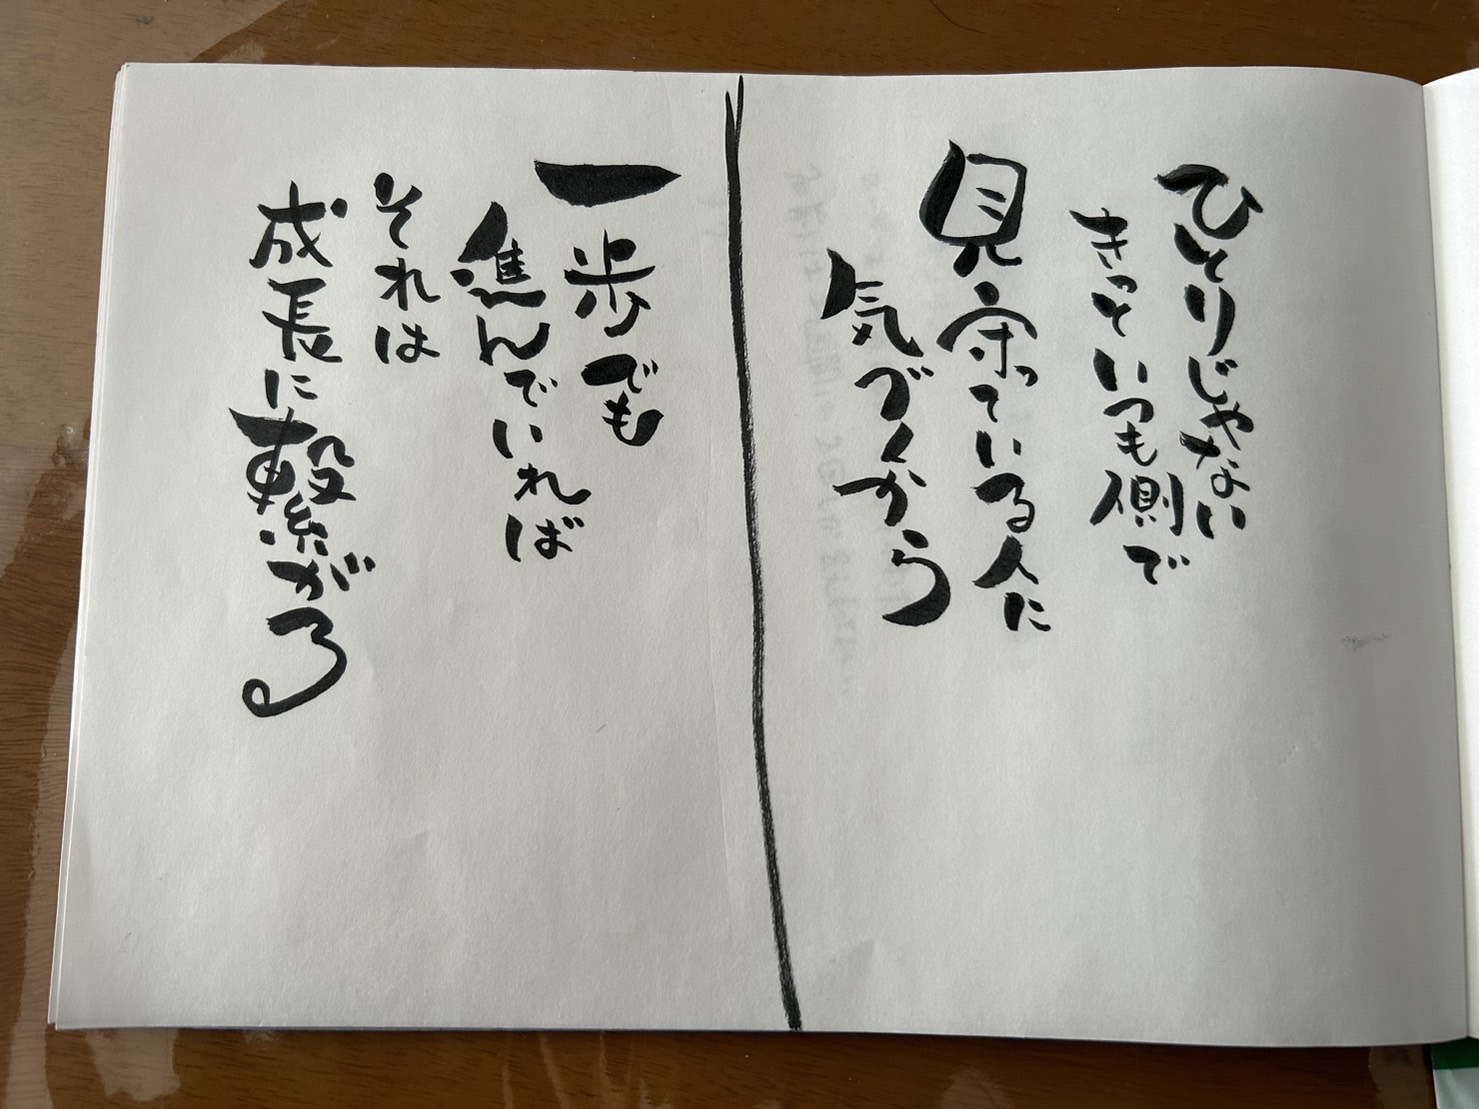 ひとりじゃない
きっといつも側で
見守っている人に
気づくから
一歩でも
進んでいれば
それは
成長に繋がる